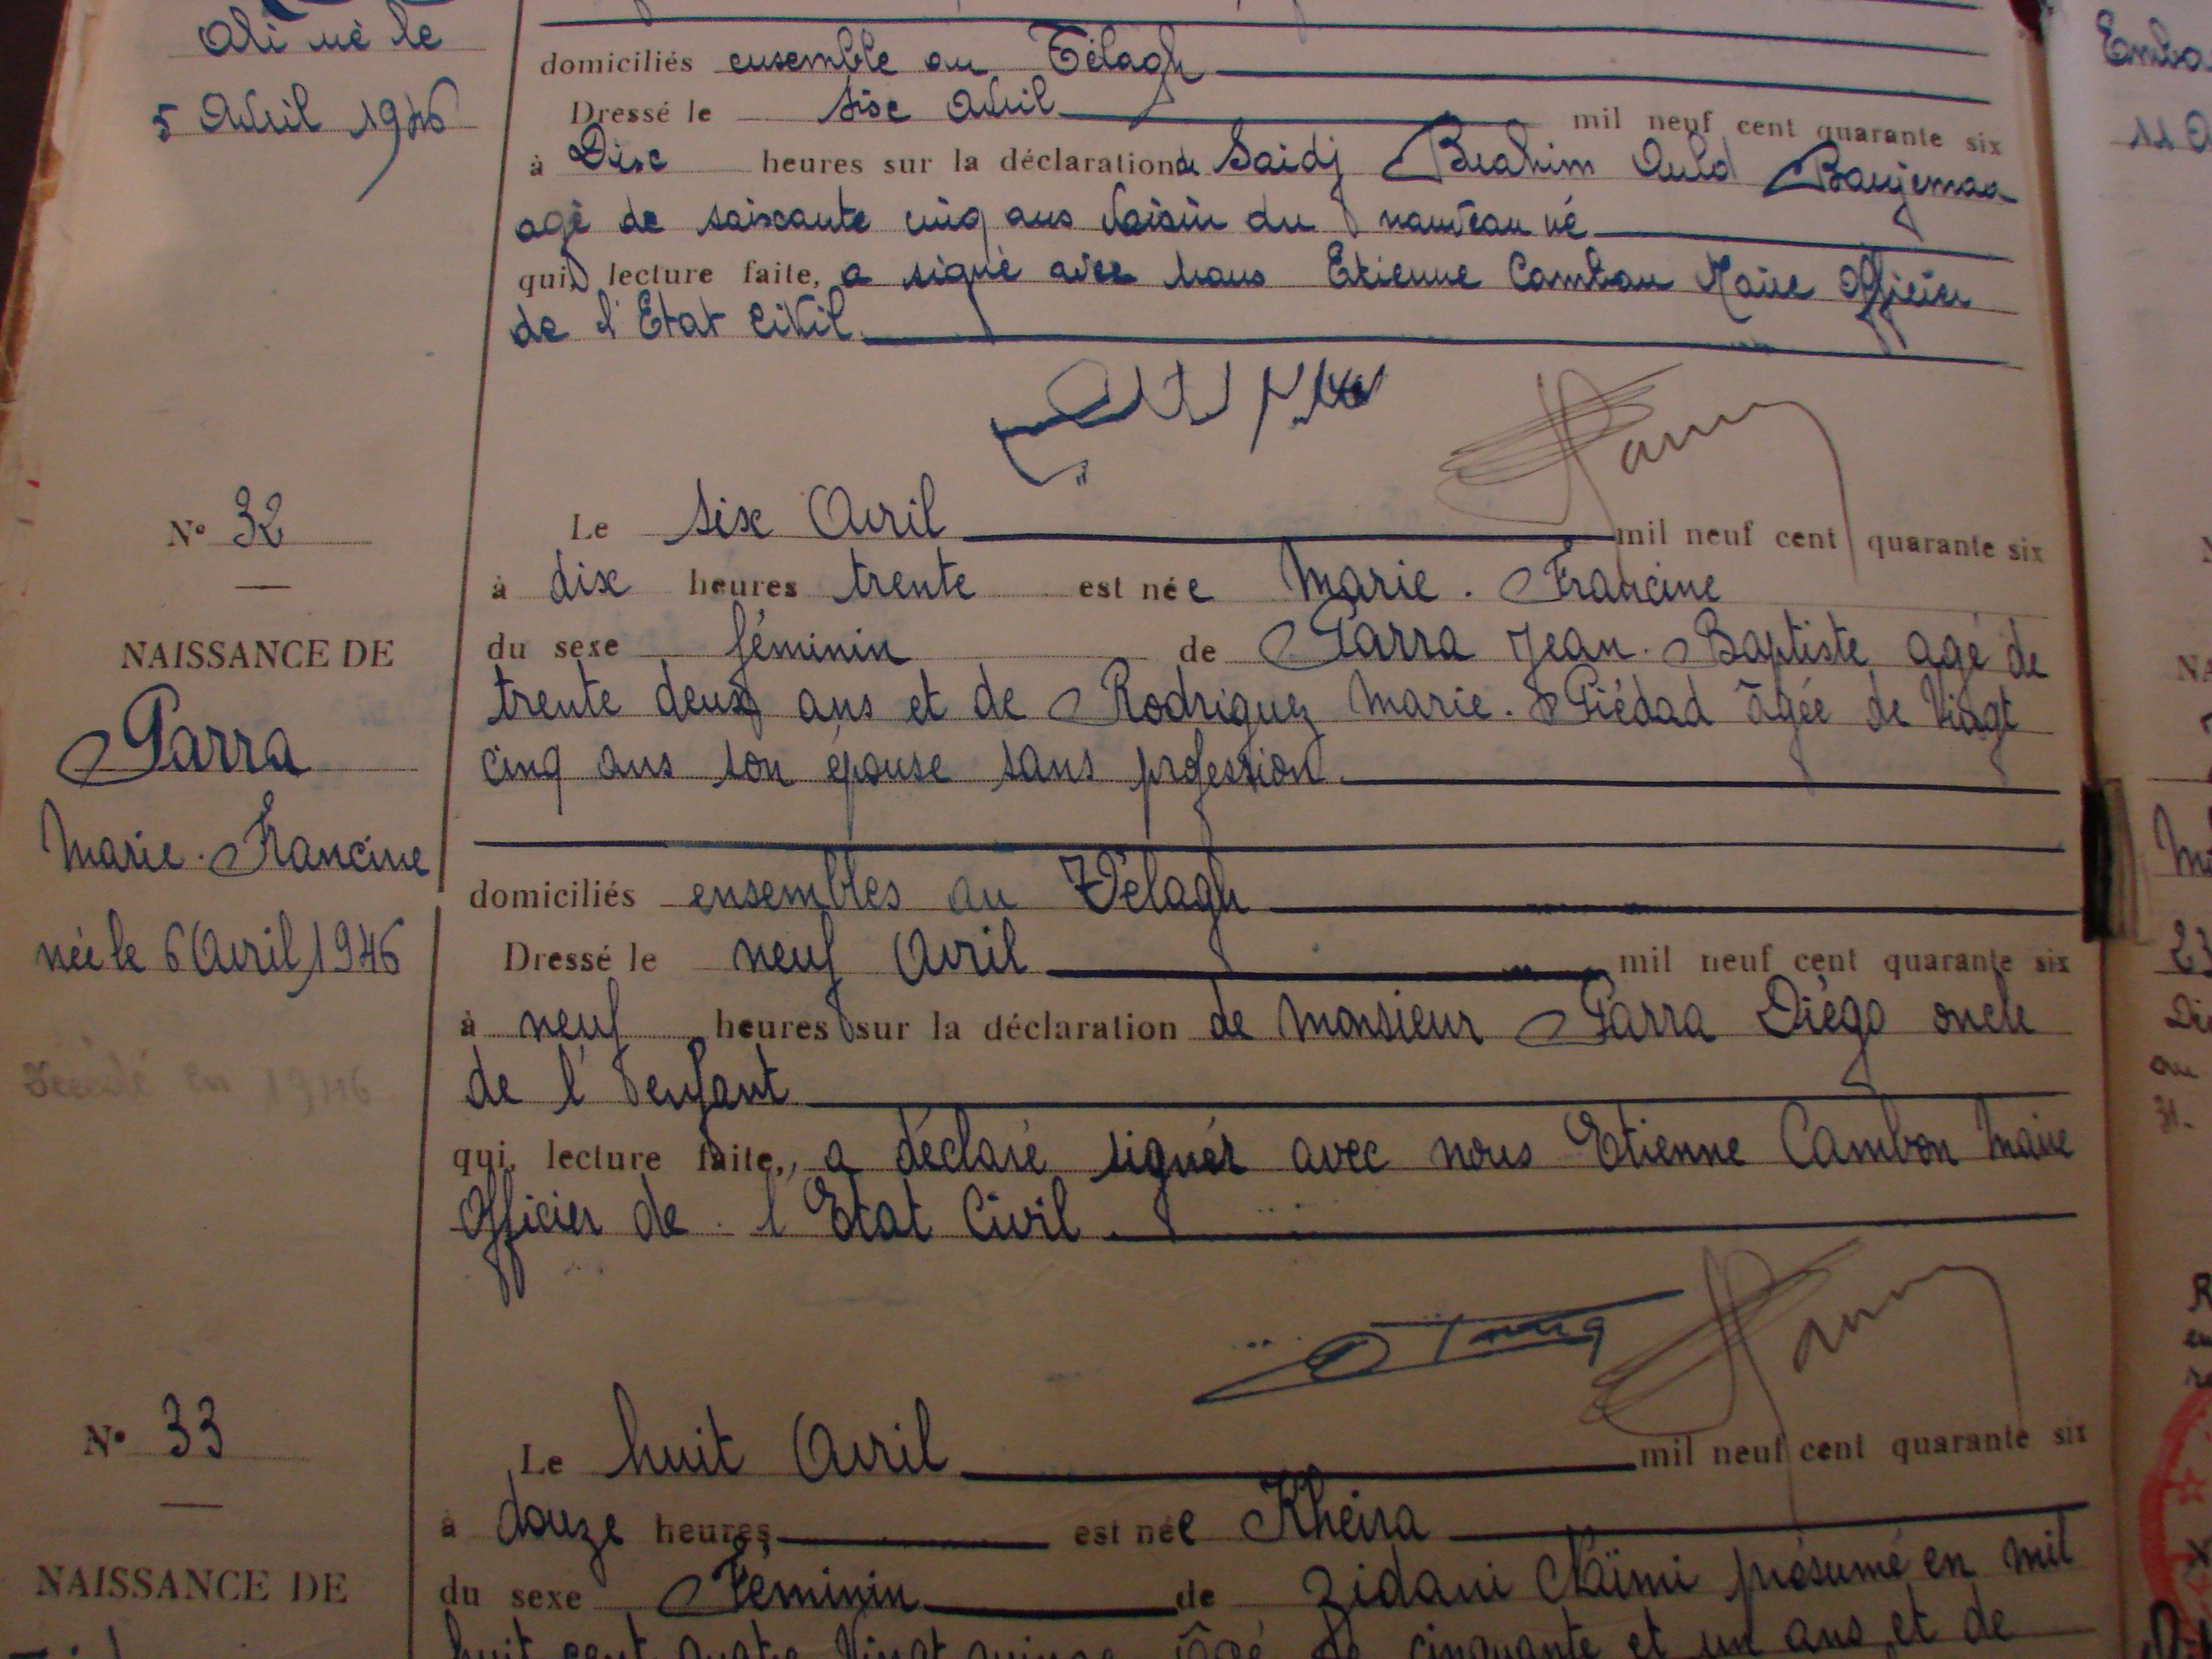 Ali né le
5 Avril 1946
domiciliés ensemble au Télagh
Dressé le sise Avril mil neuf cent quarante six
à Dise heures sur la déclaration de Saidj Brahim Ould Boujemaa
agé de soiscante cinq ans Voisin du nouveau né
qui, lecture faite, a signé avec nous Etienne Cambon Maire Officier
de l'Etat Civil.
N° 32
NAISSANCE DE
Parra
Marie. Francine
née le 6 Avril 1946
Décédé en 1946
Le six Avril mil neuf cent quarante six
à dix heures trente est née Marie. Francine
du sexe féminin de Parra Jean. Baptiste agé de
trente deux ans et de Rodriguez Marie. Piédad âgée de Vingt
cinq ans son épouse sans profession.
domiciliés ensembles au Télagh
Dressé le neuf Avril mil neuf cent quarante six
à neuf heures sur la déclaration de Monsieur Parra Diégo oncle
de l'enfant
qui, lecture faite, a déclaré signer avec nous Etienne Cambon Maire
Officier de l'Etat Civil.
N° 33
NAISSANCE DE
Le huit Avril mil neuf cent quarante six
à douze heures est née Kheira
du sexe Féminin de Zidani Naïmi présumé en mil
huit cent quatre Vingt quinze âgé de cinquante et un ans et de